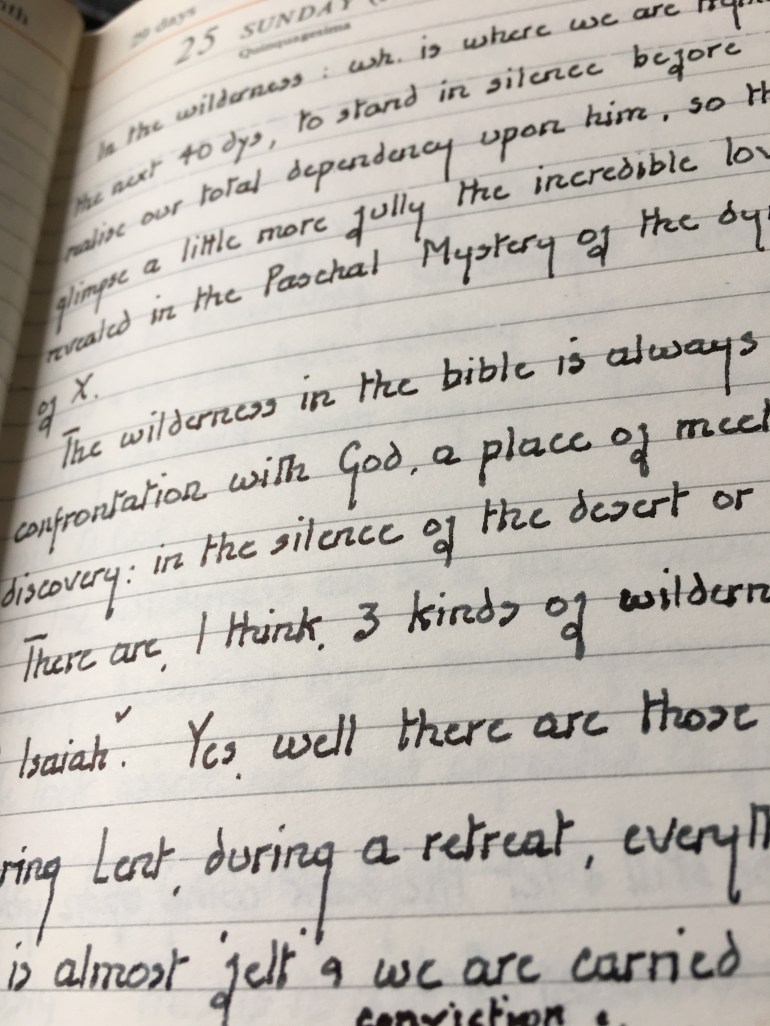 29 days
25 SUNDAY
Quinquagesima
In the wilderness: wh. is where we are
the next 40 dys, to stand in silence before
realise our total dependency upon him, so
glimpse a little more fully the incredible
revealed in the Paschal Mystery of the
of X.
The wilderness in the bible is always
confrontation with God, a place of
discovery: in the silence of the desert or
There are, I think, 3 kinds of
Isaiah. Yes, well there are those
Lent, during a retreat,
is almost 'felt' & we are carried
conviction